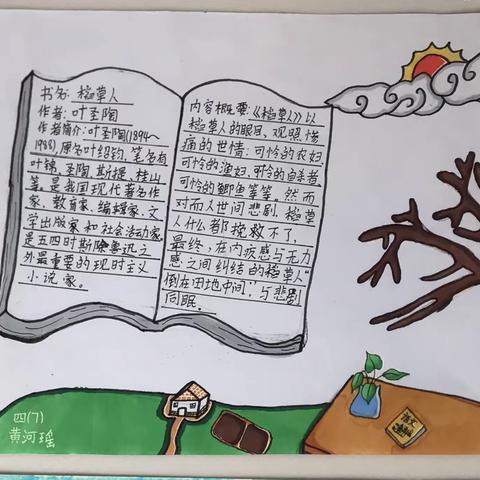 书名: 稻草人
作者: 叶圣陶
作者简介: 叶圣陶(1894~
1988), 原名叶绍钧, 笔名有
叶锦、圣陶、斯提、桂山
等。是我国现代著名作
家、教育家、编辑家、文
学出版家和社会活动家,
是五四时斯除鲁迅之
外最重要的现时主义
小说家。
内容概要:《稻草人》以
稻草人的眼目, 观照悲
痛的世情: 可怜的农妇
可怜的渔妇、可怜的自杀者,
可怜的鲫鱼等等。然而
对而人世间悲剧, 稻草
人什么都挽救不了,
最终, 在内疚感与无力
感之间纠结的稻草人"
倒在田地中间", 与悲剧
同眠。
语文
四(7)
黄河瑶